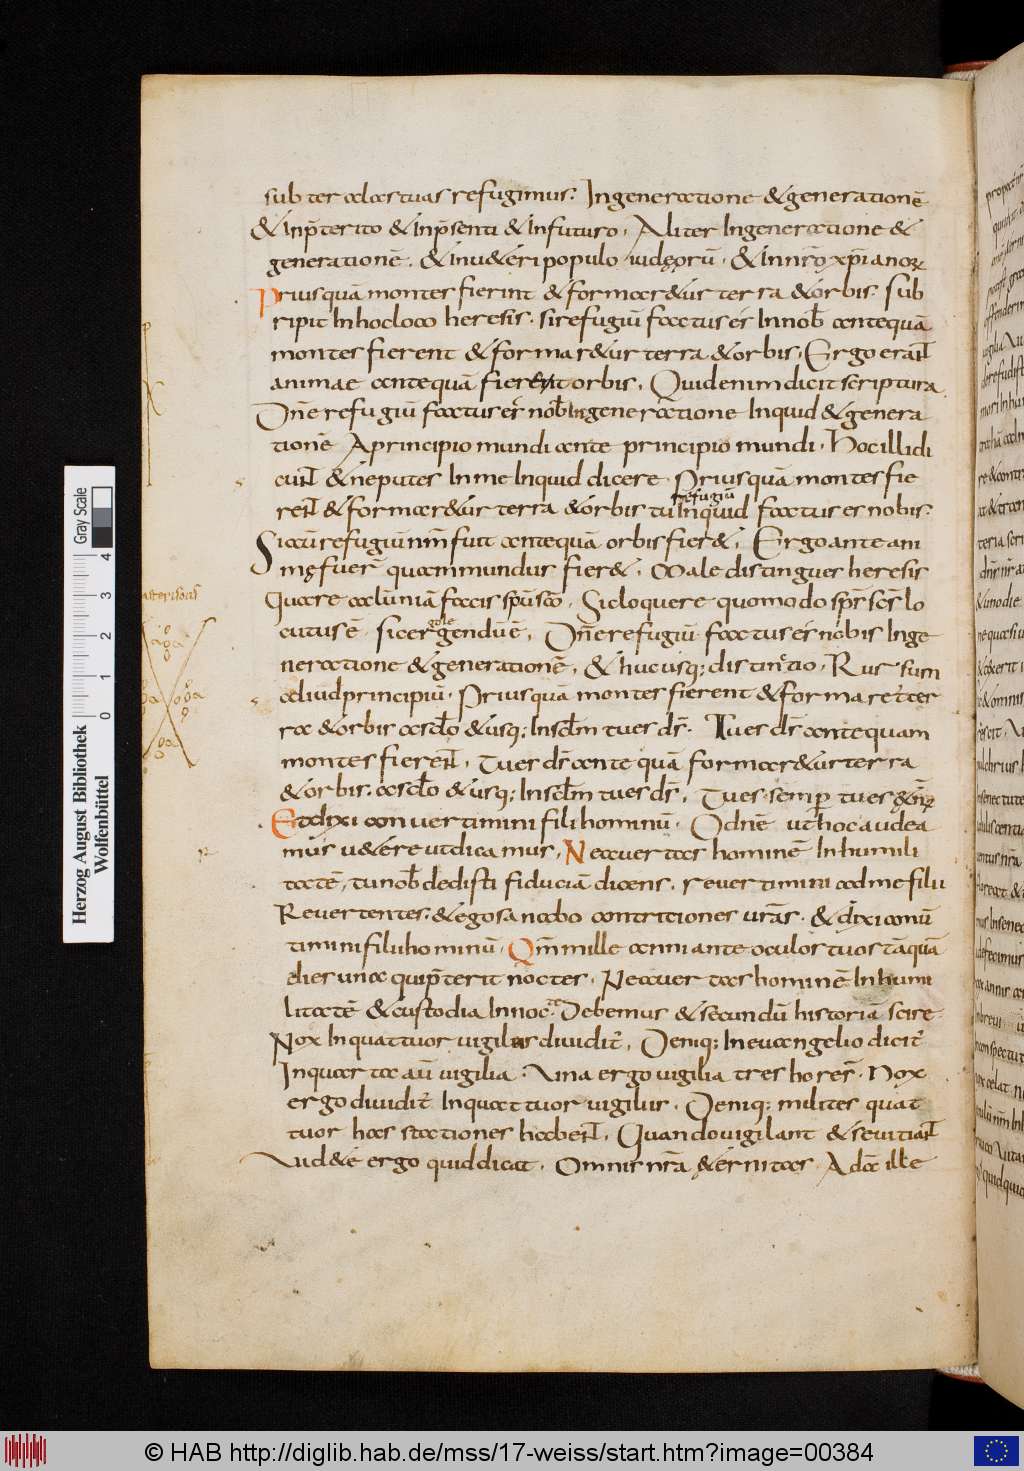 sub ter alas tuas refugimus. In generatione & generationē
& in p̄terito & in p̄senti & in futuro. Aliter in generatione &
generationē. & in u&eri populo iudęorū. & in nr̄o xp̄ianorꝝ
Priusquā montes fierint & formar&ur terra & orbis. Sub
ripit in hoc loco heresis. si refugiū factus es̄ in nob̄ antequā
montes fierent & formar&ur terra & orbis. Ergo eraNT
animae antequā fierent orbis. Quid enim dicit scriptura
Dn̄e refugiū factus es̄ nob̄ in generatione inquid & genera
tionē A principio mundi ante principio mundi. Hoc illi di
cuNT & ne putes in me inquid dicere. Priusquā montes fie
reNT & formar&ur terra & orbis tu inquid refugiū factus es nobis.
Si aūt refugiū nr̄m fuit antequā orbis fier&. Ergo ante ani
mę fuer̄ quam mundus fier&. Male distinguer heresis
Quare calūniā facis sp̄u sc̄o. Sic loquere quomodo sp̄s sc̄s lo
cutus ē sic ergo legendū ē. Dn̄e refugiū factus es̄ nobis in ge
neratione & generationē. & hucusq; distinctio. Rursum
aliud principiū. Priusquā montes fierent & formaret̄ ter
ra & orbis a sc̄do & usq; in scd̄m tu es ds̄. Tu es ds̄ antequam
montes fiereNT. Tu es ds̄ antequā formar&ur terra
& orbis. a sc̄do & usq; in scd̄m tu es ds̄. Tu es semper tu es
Et dixi convertimini fili hominū. O dn̄e ut hoc audea
mus u&ere ut dicamus. Ne avertas hominē in humili
tatē. tu nob̄ dedisti fiduciā dicens. revertimini ad me filii
Revertentes. & ego sanabo contritiones vr̄as. & dixi conū
timini filii hominū. Qm̄ mille anni ante oculos tuos tāquā
dies una qui p̄terit noctes. Ne avertas hominē in humi
litatē & custodia in noc̄te Debemus & secundū historiā scire
Nox in quattuor vigilias dividit̄. Deniq; in evangelio dicit̄
In quarta aūt vigilia. Una ergo vigilia tres hores̄. Nox
ergo dividit̄ in quattuor vigiliis. Deniq; milites quat
tuor has stationes habeNT. Quando vigilant & sevitiaNT
Vid&e ergo quid dicat. Omnis nr̄a &ernitas. Ad illē
refugiū
asteriscus
Gray Scale
0 1 2 3 4
Herzog August Bibliothek
Wolfenbüttel
© HAB http://diglib.hab.de/mss/17-weiss/start.htm?image=00384